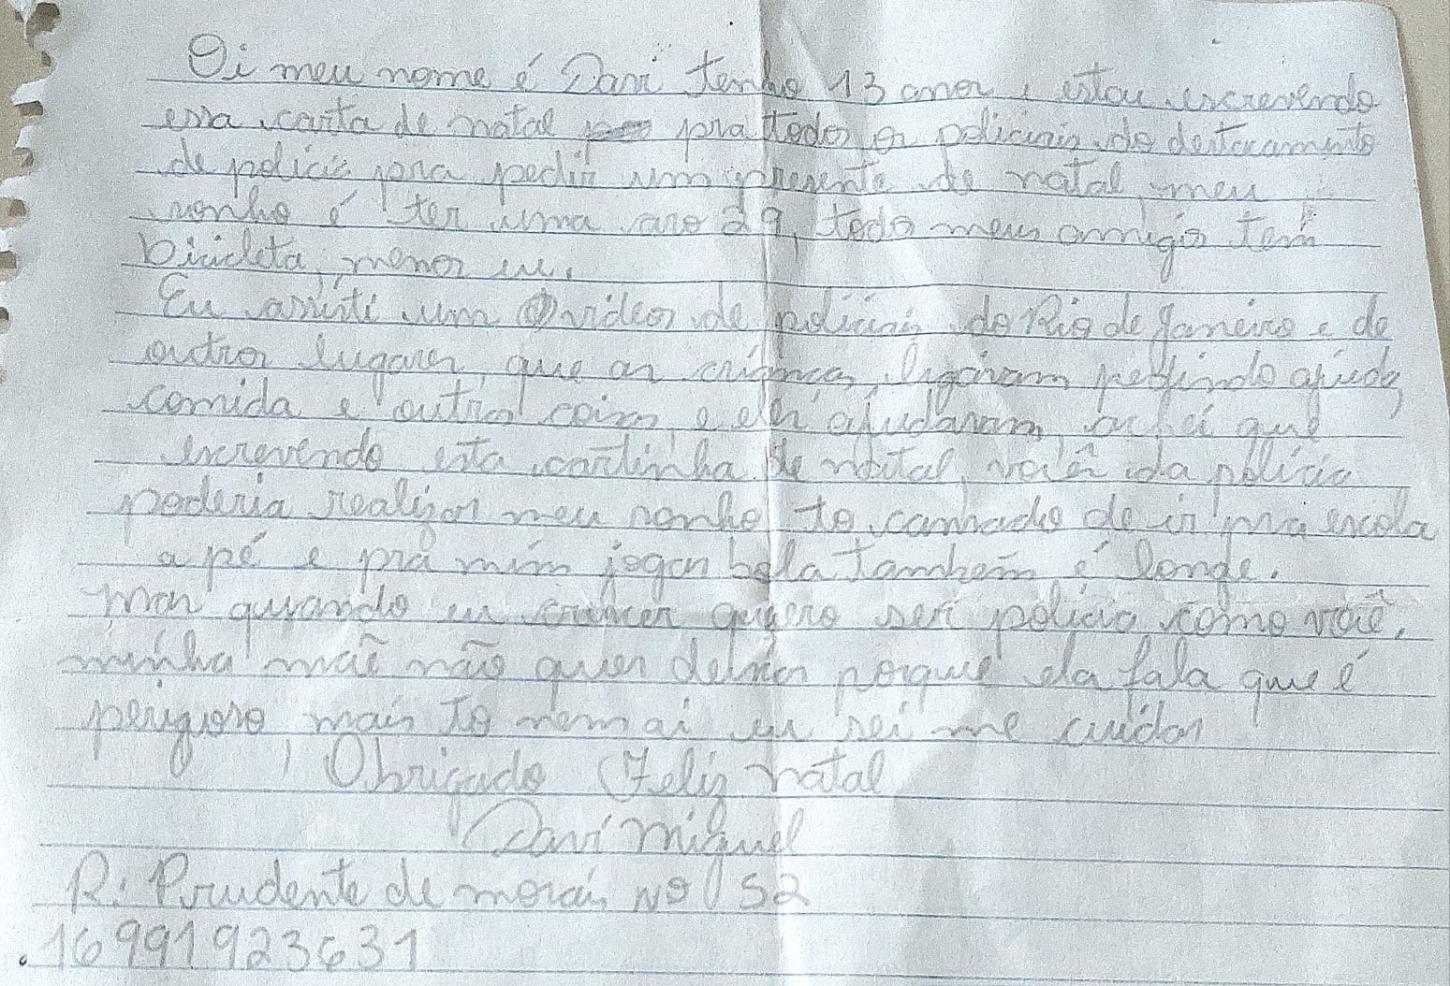 Oi meu nome é Davi tenho 13 anos, estou escrevendo
essa carta de natal pra todos os policiais do destacamento
de polícia pra pedir um presente de natal, meu
sonho é ter uma aro 29, todo meus amigos tem
bicicleta, menos eu.
Eu assisti um videos de policiais do Rio de Janeiro e de
outros lugares, que as crianças, ligavam pedindo ajuda,
comida e outras coisas, e eles ajudaram, achei que
escrevendo esta cartinha de natal, você da polícia
poderia realizar meu sonho, to cansado de ir pra escola
a pé e pra mim jogar bola também é longe.
mas quando eu crescer quero ser polícia como você,
minha mãe não quer deixar porque ela fala que é
perigoso, mais to nem ai eu sei me cuidar
Obrigado Feliz natal
Davi Miguel
R: Prudente de morais Nº 52
16 991923631